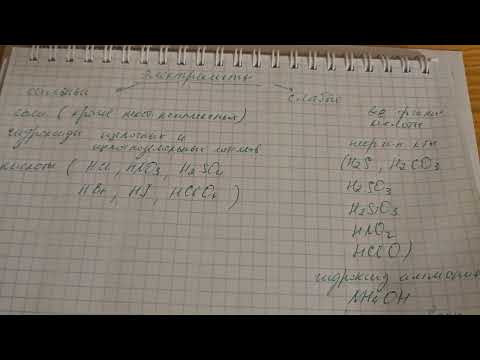 Электролиты
сильные
слабые
соли (кроме
гидроксиды щелочных и
щелочноземельных металлов
кислоты (HCl, HNO3, H2SO4
HBr, HI, HClO4)
кислоты
(H2S, H2CO3
H2SO3
H2SiO3
HNO2
HClO)
гидроксид аммония
NH4OH